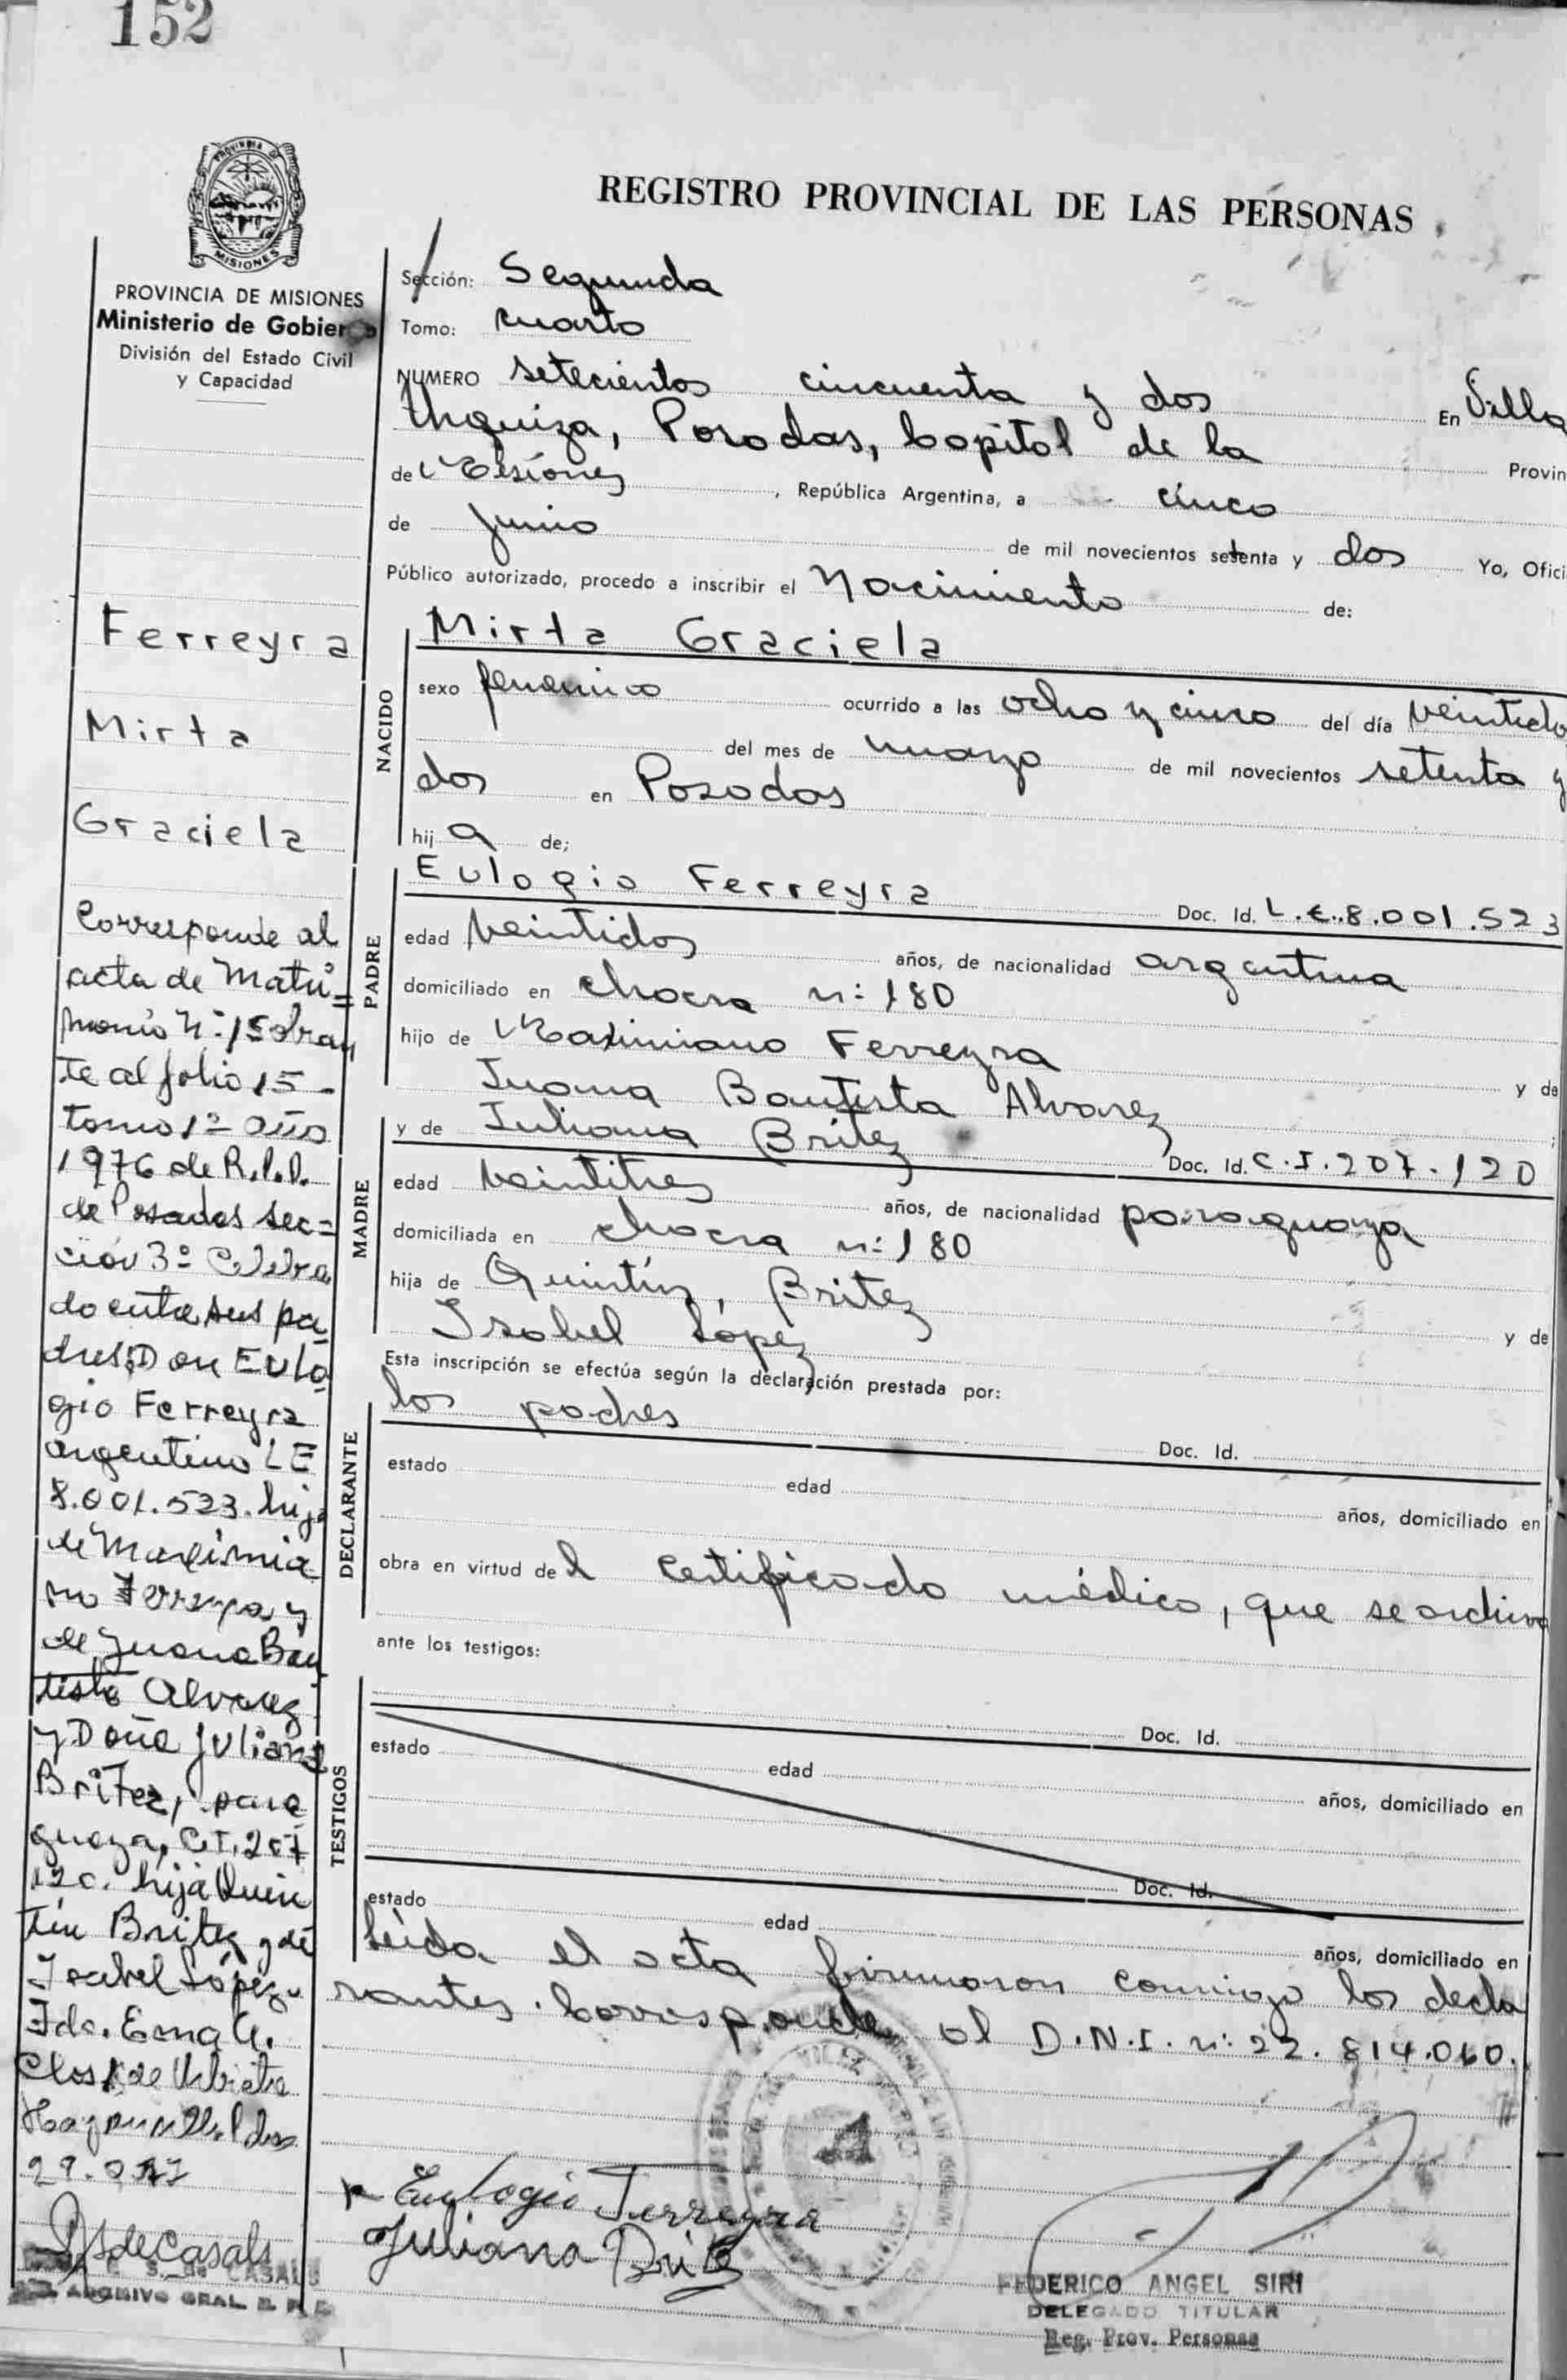 152
REGISTRO PROVINCIAL DE LAS PERSONAS
PROVINCIA DE MISIONES
Ministerio de Gobierno
División del Estado Civil
y Capacidad
Ferreyra
Mirta
Graciela
Corresponde al
acta de Matri=
monio N° 15 obran
te al folio 15
tomo 1° año
1976 de R.P.P.
de Posadas sec=
ción 3° Celebra
do entre sus pa
dres; Don Eulo
gio Ferreyra
argentino LE
8.001.523. hijo
de Maximia
no Ferreyra y
de Juana Bau
tista Alvarez
y Doña Juliana
Britez, para
guaya, C.I. 207
120. hija Quin
tín Britez y de
Isabel López.
Fdo. Ema A.
de
29.
C. S. de CASALS
ARCHIVO GRAL R. P. P.
Sección: Segunda
Tomo: cuarto
NUMERO setecientos cincuenta y dos En Villa
Urquiza, Posadas, Capital de la Provin
de Misiones, República Argentina, a cinco
de Junio de mil novecientos setenta y dos Yo, Ofici
Público autorizado, procedo a inscribir el Nacimiento de:
NACIDO
Mirta Graciela
sexo femenino ocurrido a las ocho y cinco del día veintido
del mes de mayo de mil novecientos setenta y
dos en Posadas
hija de;
PADRE
Eulogio Ferreyra Doc. Id. L.E. 8.001.523
edad veintidos años, de nacionalidad argentina
domiciliado en chacra n° 180
hijo de Maximiano Ferreyra y de
Juana Bautista Alvarez
MADRE
y de Juliana Britez Doc. Id. C.I. 207.120
edad veintitres años, de nacionalidad paraguaya
domiciliada en chacra n° 180
hija de Quintín Britez y de
Isabel López
Esta inscripción se efectúa según la declaración prestada por:
DECLARANTE
los padres Doc. Id.
estado edad años, domiciliado en
obra en virtud del certificado médico, que se archiva
ante los testigos:
TESTIGOS
Doc. Id.
estado edad años, domiciliado en
Doc. Id.
estado edad años, domiciliado en
Leída el acta firmaron conmigo los decla
rantes. Corresponde al D.N.I. n° 22.814.060.
Eulogio Ferreyra
Juliana Britez
FEDERICO ANGEL SIRI
DELEGADO TITULAR
Reg. Prov. Personas